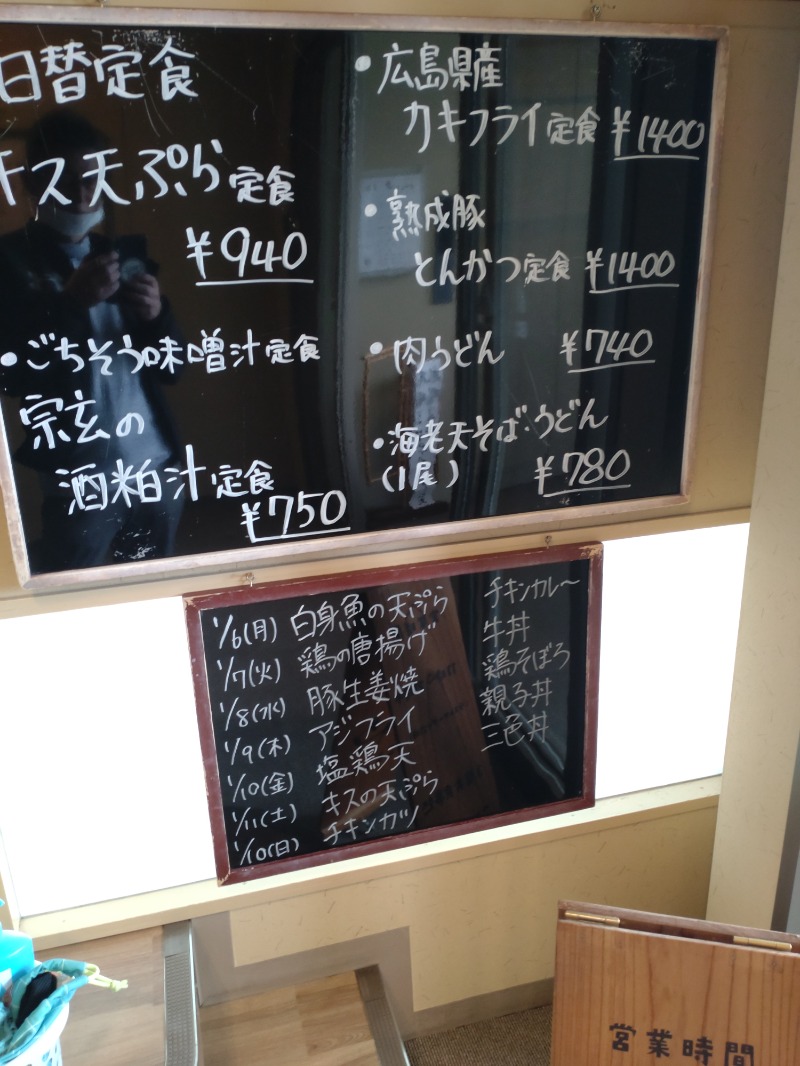 日替定食
キス天ぷら定食
¥940
・ごちそう味噌汁定食
宗玄の
酒粕汁定食
¥750
・広島県産
カキフライ定食 ¥1400
・熟成豚
とんかつ定食 ¥1400
・肉うどん ¥740
・海老天そば・うどん
(1尾) ¥780
1/6(月) 白身魚の天ぷら チキンカレ〜
1/7(火) 鶏の唐揚げ 牛丼
1/8(水) 豚生姜焼 鶏そぼろ
1/9(木) アジフライ 親子丼
1/10(金) 塩鶏天 三色丼
1/11(土) キスの天ぷら
1/10(日) チキンカツ
営業時間